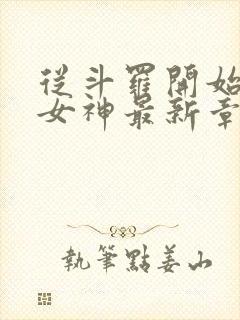 從斗羅開始
女神最新章
執筆點姜山